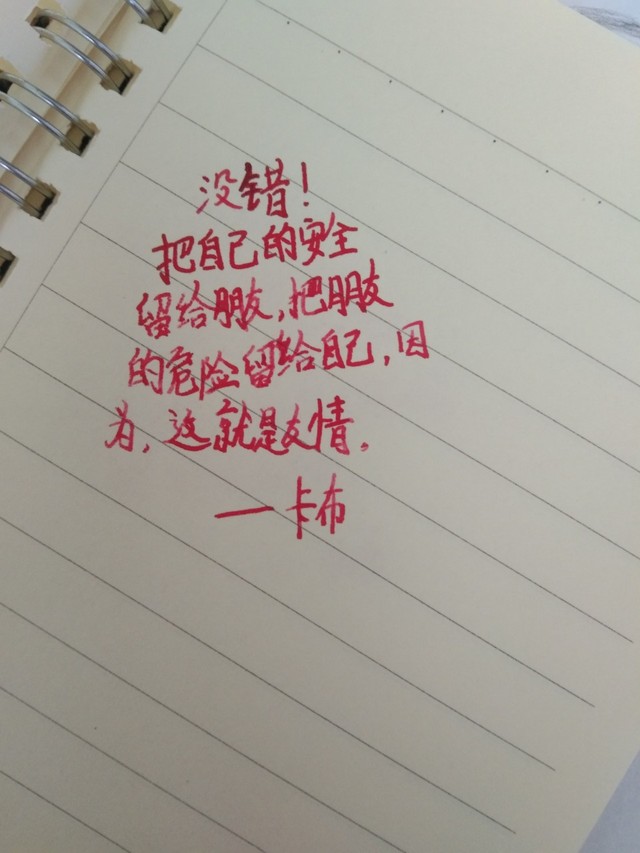 没错！
把自己的安全
留给朋友，把朋友
的危险留给自己，因
为，这就是友情。
—卡布